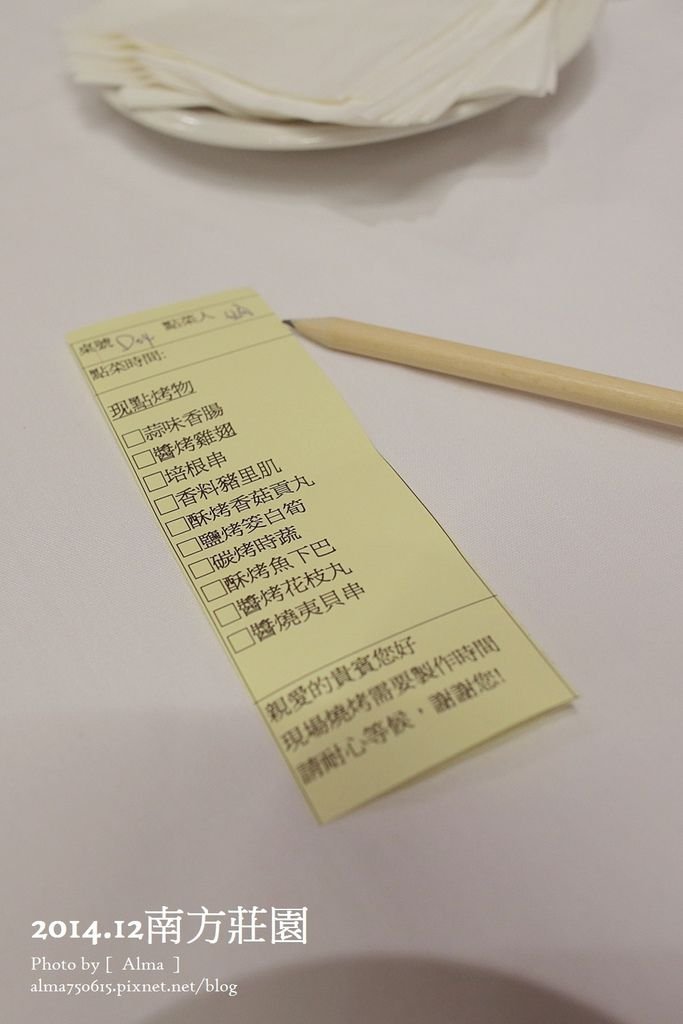 桌號 Do4 點菜人
點菜時間:
現點烤物
□蒜味香腸
□醬烤雞翅
□培根串
□香料豬里肌
□酥烤香菇貢丸
□鹽烤筊白筍
□碳烤時蔬
□酥烤魚下巴
□醬烤花枝丸
□醬燒夷貝串
親愛的貴賓您好
現場燒烤需要製作時間
請耐心等候，謝謝您!
2014.12南方莊園
Photo by [ Alma ]
alma750615.pixnet.net/blog